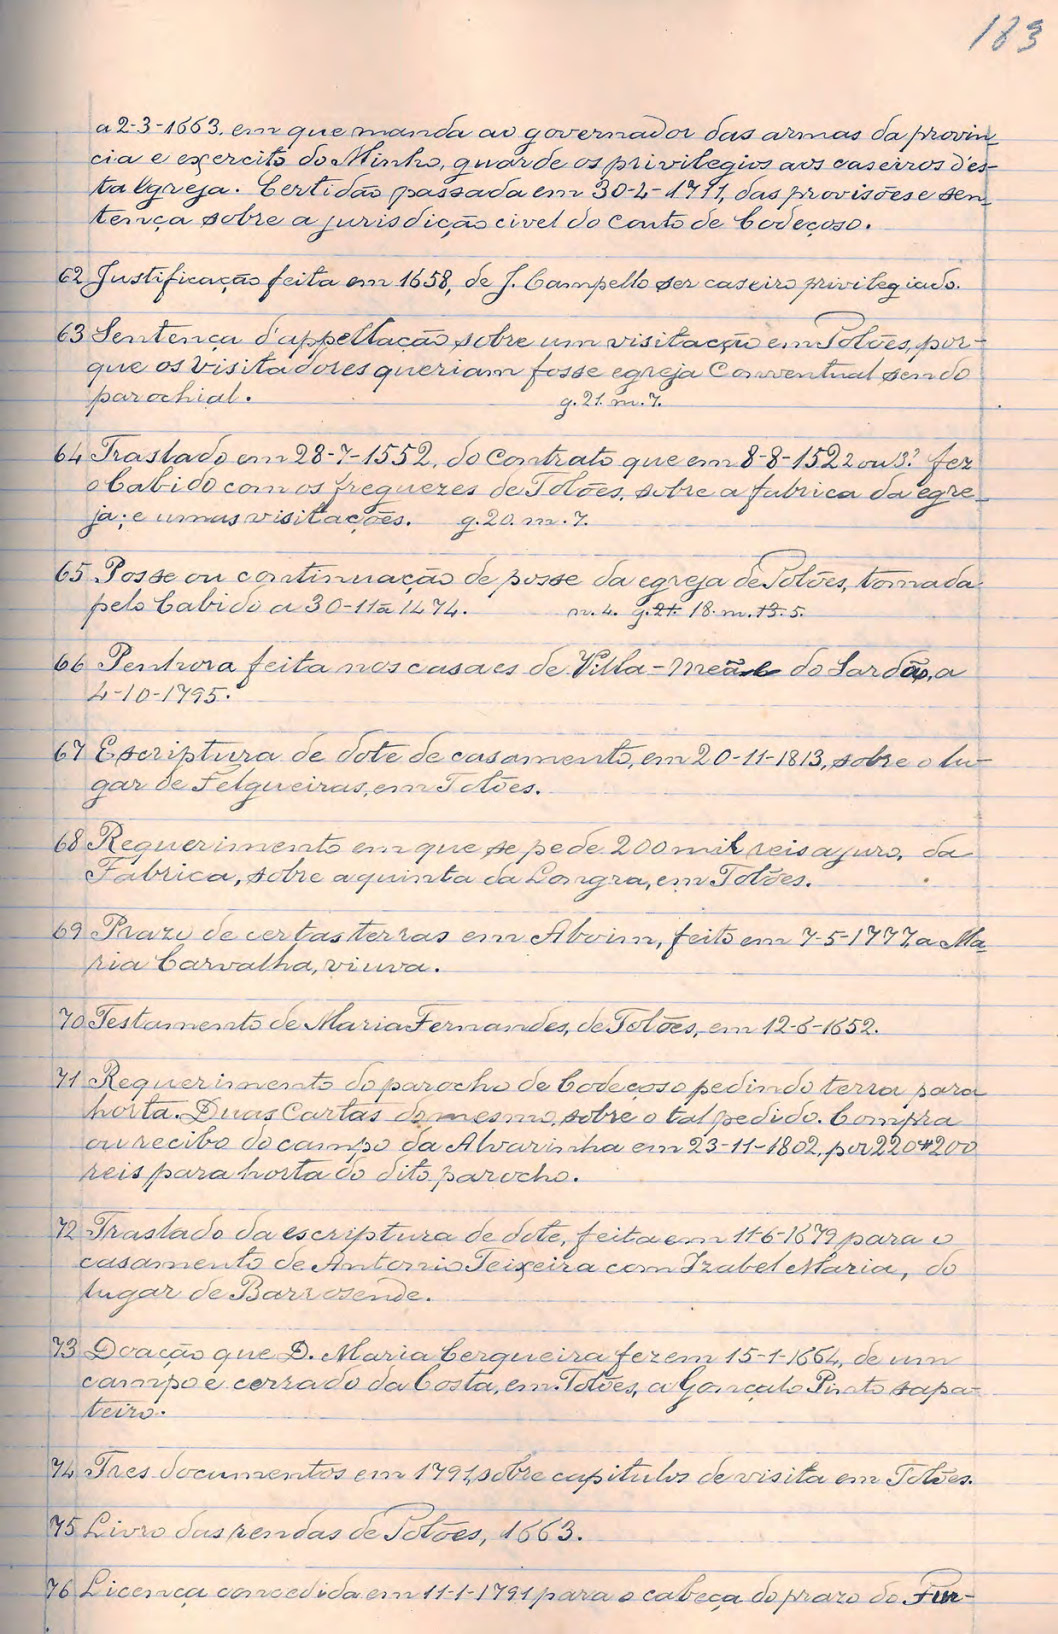 183
a 2-3-1663, em que manda ao governador das armas da provin
cia e exercito do Minho, guarde os privilegios aos caseiros des-
ta Egreja. Certidão passada em das provisões e sen
tença sobre a jurisdicção civel do Couto de Codeçoso.
62 Justificação feita em 1658, de J. Campello ser caseiro privilegiado.
63 Sentença d'appellação sobre um visitacção em Tolões, por-
que os Visitadores queriam fosse egreja Conventual sendo
parochial. g. 21. m. 7.
64 Traslado em 28-7-1552, do Contrato que em 8-8-1522 ou 3? fez
o Cabido com os freguezes de Tolões, sobre a fabrica da egre-
ja; e umas visitações. g. 20. m. 7.
65 Posse ou continuação de posse da egreja de Tolões, tomada
pelo Cabido a 30-11-1474. n. 4. g. 21. 18. m. 13. 5.
66 Penhora feita nos casaes de Villa-Meã do Sardão, a
4-10-1795.
67 Escriptura de dote de casamento, em 20-11-1813, sobre o lu-
gar de Felgueiras, em Tolões.
68 Requerimento em que se pede 200 mil reis a juro, da
Fabrica, sobre a quinta da Longra, em Tolões.
69 Prazo de certas terras em Aboim, feito em 7-5-1777, a Ma
ria Carvalha, viuva.
70 Testamento de Maria Fernandes, de Tolões, em 12-6-1652.
71 Requerimento do parocho de Codeçoso pedindo terra para
horta. Duas Cartas do mesmo, sobre o tal pedido. Compra
ou recibo do campo da Alvarinha em 23-11-1802, por 220#200
reis para horta do dito parocho.
72 Traslado da escriptura de dote, feita em 11-6-1679 para o
casamento de Antonio Teixeira com Izabel Maria, do
lugar de Barrosende.
73 Doação que D. Maria Cerqueira fez em 15-1-1664, de um
campo e cerrado da Costa, em Tolões, a Gonçalo Pinto sapa-
teiro.
74 Tres documentos em 1791, sobre capitulos de visita em Tolões.
75 Livro das rendas de Tolões, 1663.
76 Licença concedida em 11-1-1791 para o cabeça do prazo do